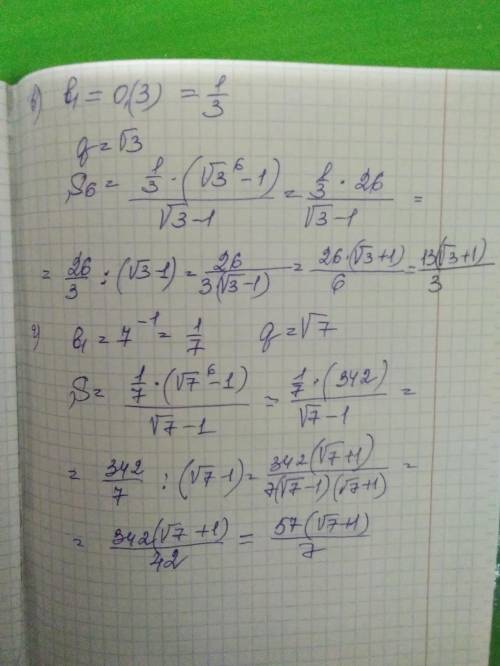 в) b₁ = 0,(3) = 1/3
q = √3
S₆ = (1/3 · (√3⁶ - 1))/(√3 - 1) = (1/3 · 26)/(√3 - 1) =
= 26/3 : (√3 - 1) = 26/(3(√3 - 1)) = (26 · (√3 + 1))/6 = (13(√3 + 1))/3
г) b₁ = 7⁻¹ = 1/7 q = √7
S = (1/7 · (√7⁶ - 1))/(√7 - 1) = (1/7 · (342))/(√7 - 1) =
= 342/7 : (√7 - 1) = (342(√7 + 1))/(7(√7 - 1)(√7 + 1)) =
= (342(√7 + 1))/42 = (57(√7 + 1))/7